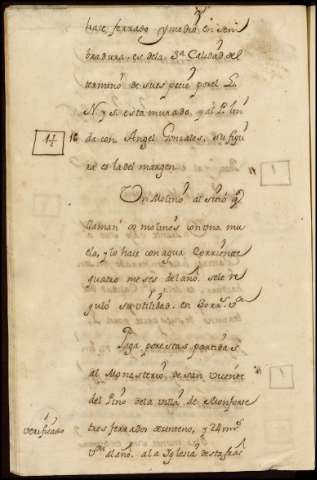 hace ferrado y medio en sem
bradura, es dela 3ª Calidad del
termino de su especie por el L.
N. y S. esta murado, y al P. lin
da con Angel Gonzales, su figu
ra es la del margen
1½
Un Molino al sitio q
llaman os molinos con una mu
ela, y lo hace con agua corriente
quatro meses del año. sele re
guló su utilidad. en
Paga por estas partidas
al Monasterio de San Vicente
del Pino dela villa de Monforte
verificado
tres ferrados zenteno, y 24 mrs
Vn alaño. ala Iglesia destafeis